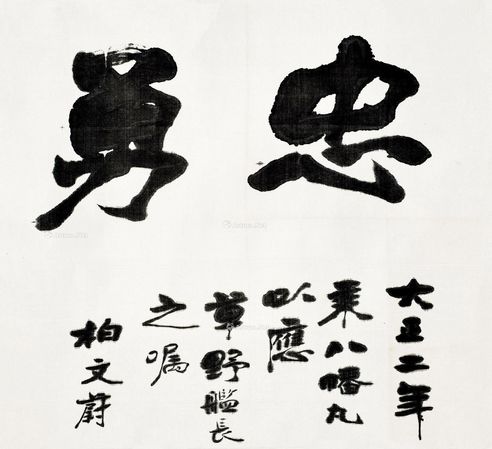 忠勇
大正二年
乘八幡丸
以應
草野艦長
之嘱
柏文蔚